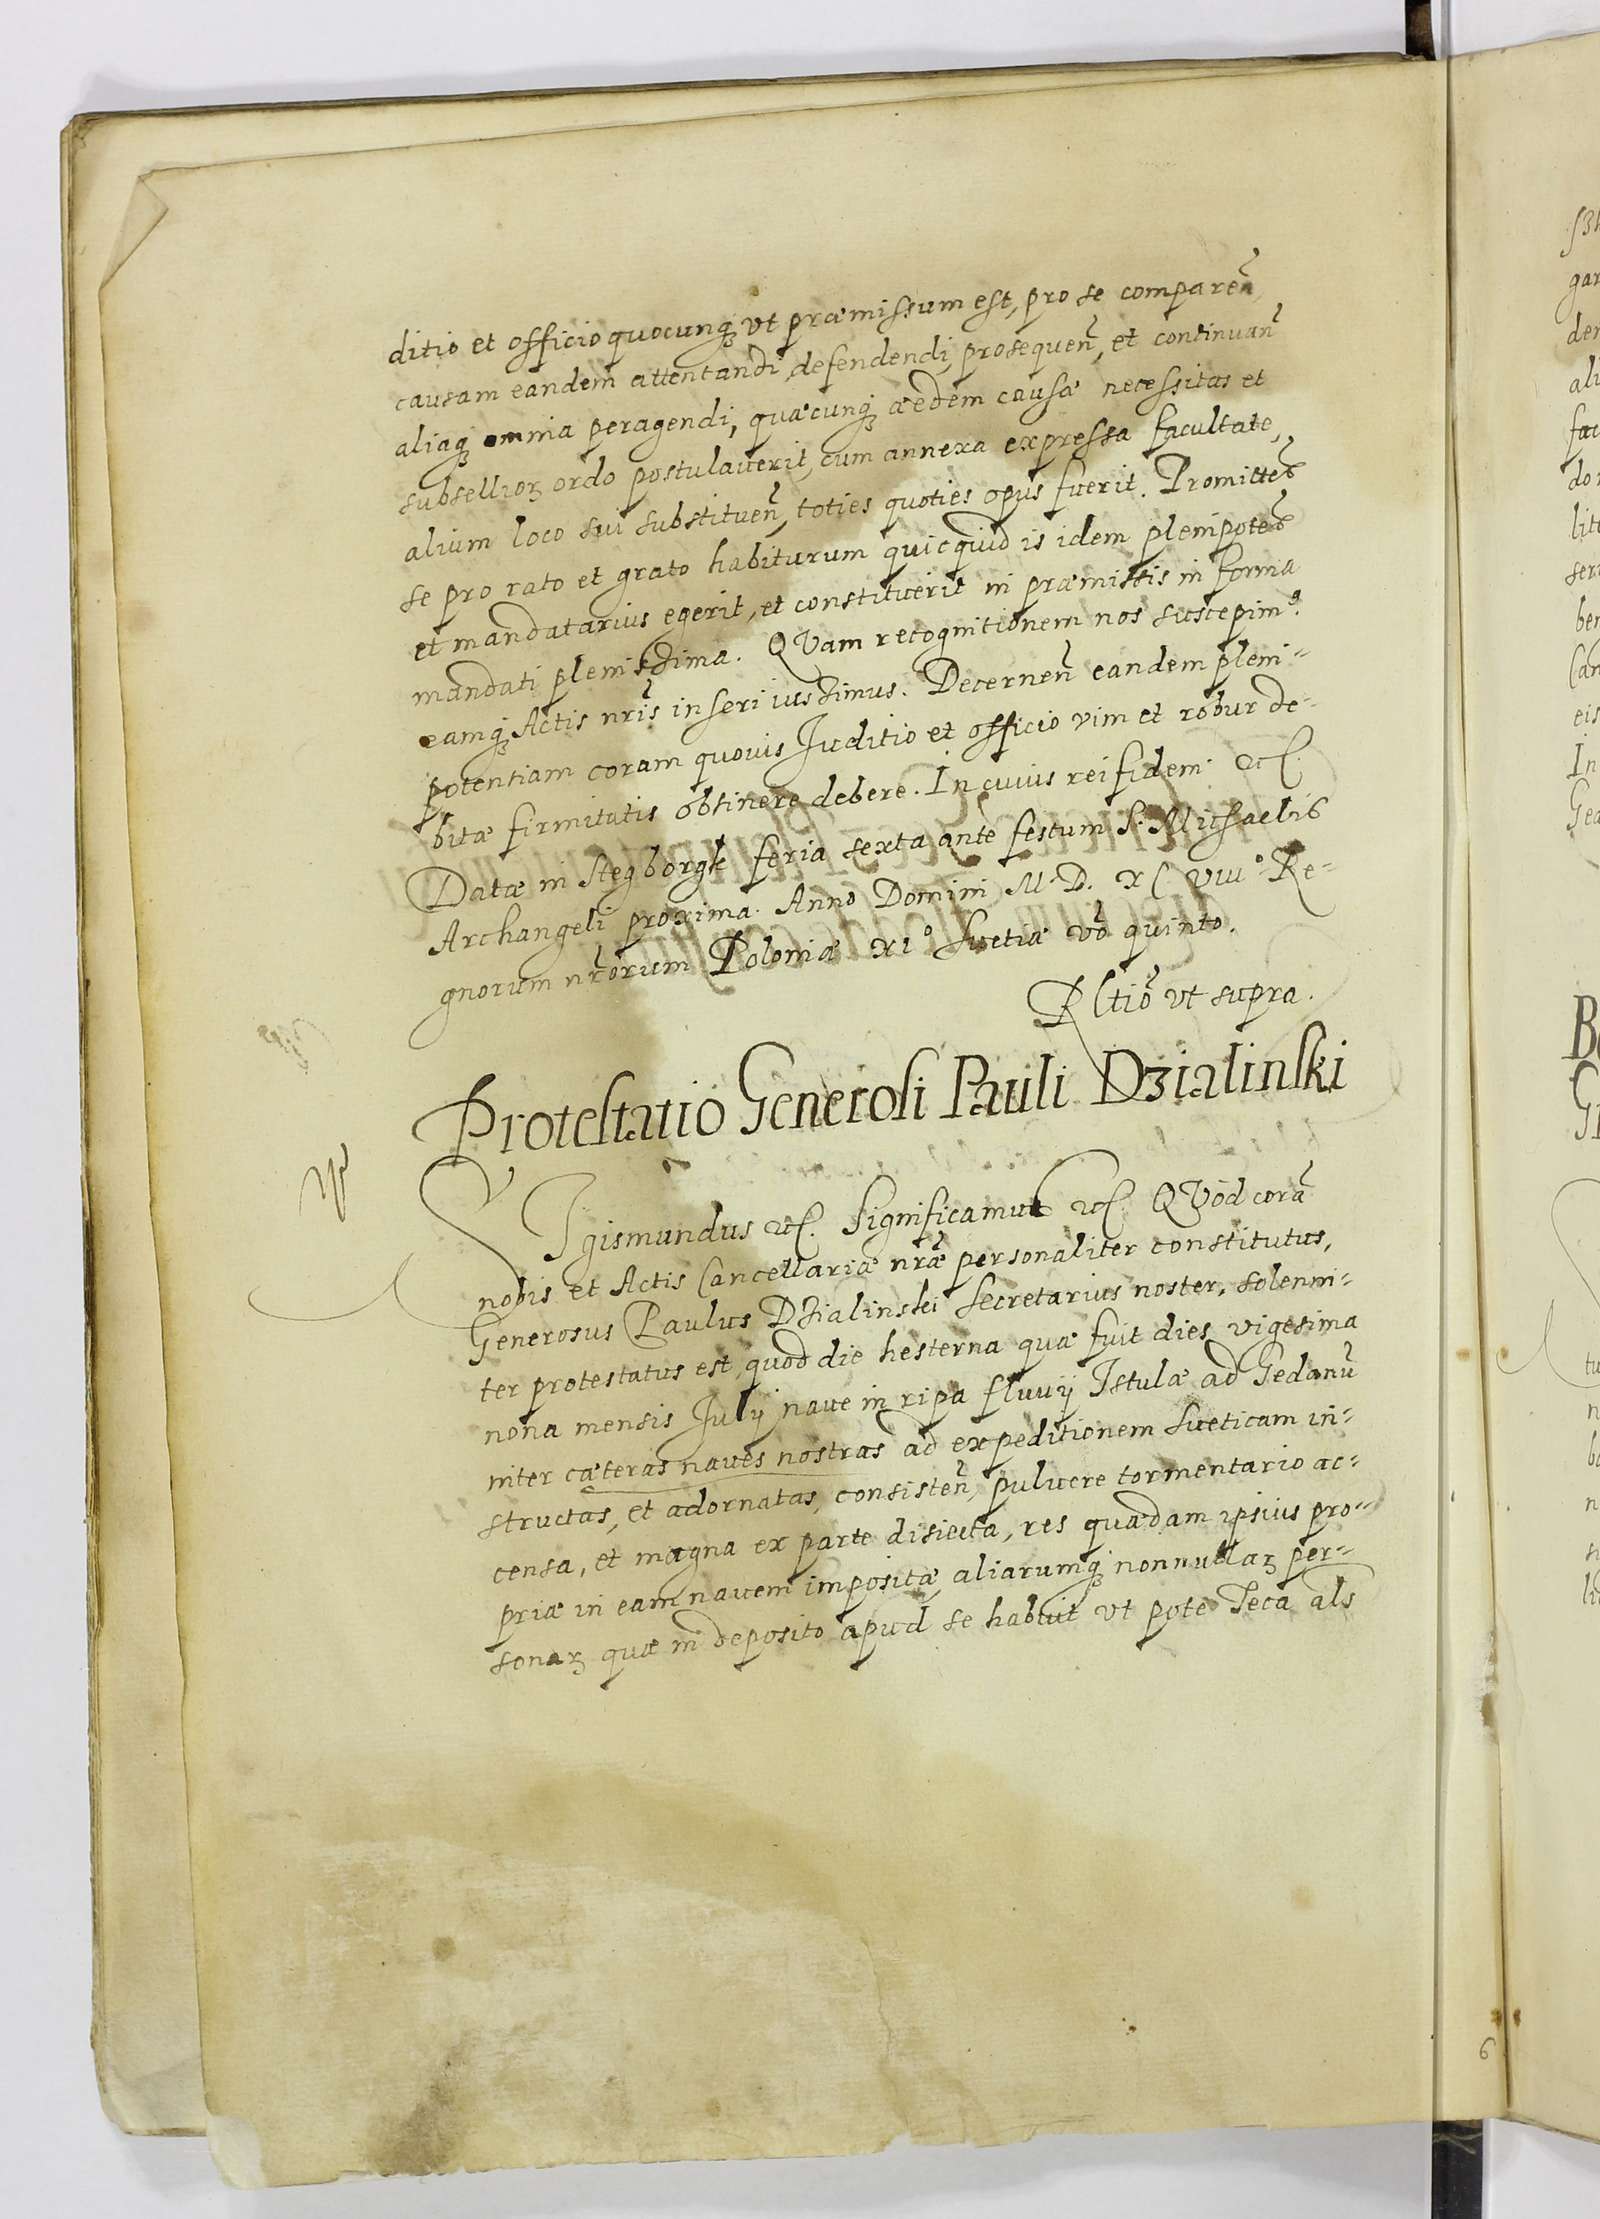 ditio et officio quocunq; vt præmissum est, pro se comparen̄
causam eandem attentandi, defendendi, prosequen̄, et continuan̄
aliaq; omnia peragendi, quæcunq; æedem causæ necessitas et
subsellioꝝ ordo postulaverit, cum annexa expressa facultate,
alium loco sui substituen̄, toties quoties opus fuerit. Promitten̄
se pro rato et grato habiturum quicquid is idem plenipoten̄
et mandatarius egerit, et constituerit in præmissis in forma
mandati plenissima. QVam recognitionem nos suscepimꝰ.
eamq; Actis nr̄is inseri iussimus. Decernen̄ eandem pleni-
potentiam coram quovis Juditio et officio vim et robur de-
bitæ firmitatis obtinere debere. In cuius rei fidem etc.
Datæ in Stegborgk feria sexta ante festum S. Michaelis
Archangeli proxima. Anno Domini M. D. XC VIII.° Re-
gnorum nr̄orum Poloniæ XI° Suetiæ vō quinto.
Rltiō vt supra.
Protestatio Generosi Pauli Dzialinski
SIgismundus etc. Significamus etc. QVod corā
nobis et Actis Cancellariæ nr̄æ personaliter constitutus,
Generosus Paulus Dzialinski Secretarius noster, solenni-
ter protestatus est, quod die hesterna quæ fuit dies vigesima
nona mensis Julÿ nave in ripa fluvÿ Istulæ ad Gedanū
inter cæteras naves nostras ad expeditionem Sueticam in-
structas, et adornatas, consisten̄, pulvere tormentario ac-
censa, et magna ex parte disiecta, res quædam ipsius pro-
priæ in eam navem impositæ, aliarumq; nonnullaꝝ per-
sonaꝝ quæ in deposito apud se habuit vt pote Teca als
6